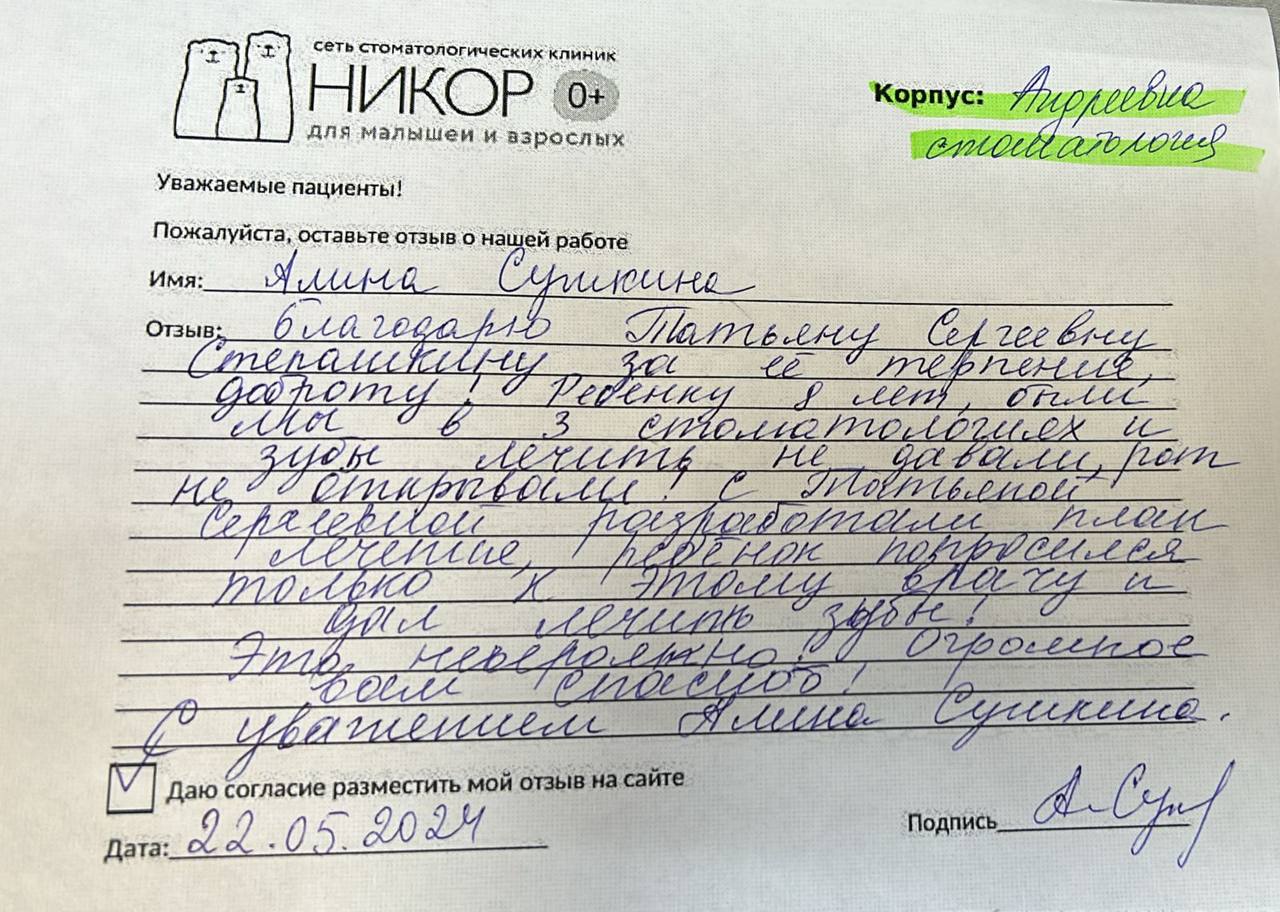 сеть стоматологических клиник
НИКОР 0+
для малышей и взрослых
Корпус: Андреевка
стоматология
Уважаемые пациенты!
Пожалуйста, оставьте отзыв о нашей работе
Имя: Алина Сушкина
Отзыв: благодарю Татьяну Сергеевну
Степашкину за её терпение,
доброту! Ребёнку 8 лет, были
мы в 3 стоматологиях и
зубы лечить не давали, рот
не открывали! С Татьяной
Сергеевной разработали план
лечение, ребёнок попросился
только к этому врачу и
дал лечить зубы!
Это невероятно! Огромное
вам спасибо!
С уважением Алина Сушкина.
Даю согласие разместить мой отзыв на сайте
Дата: 22.05.2024
Подпись